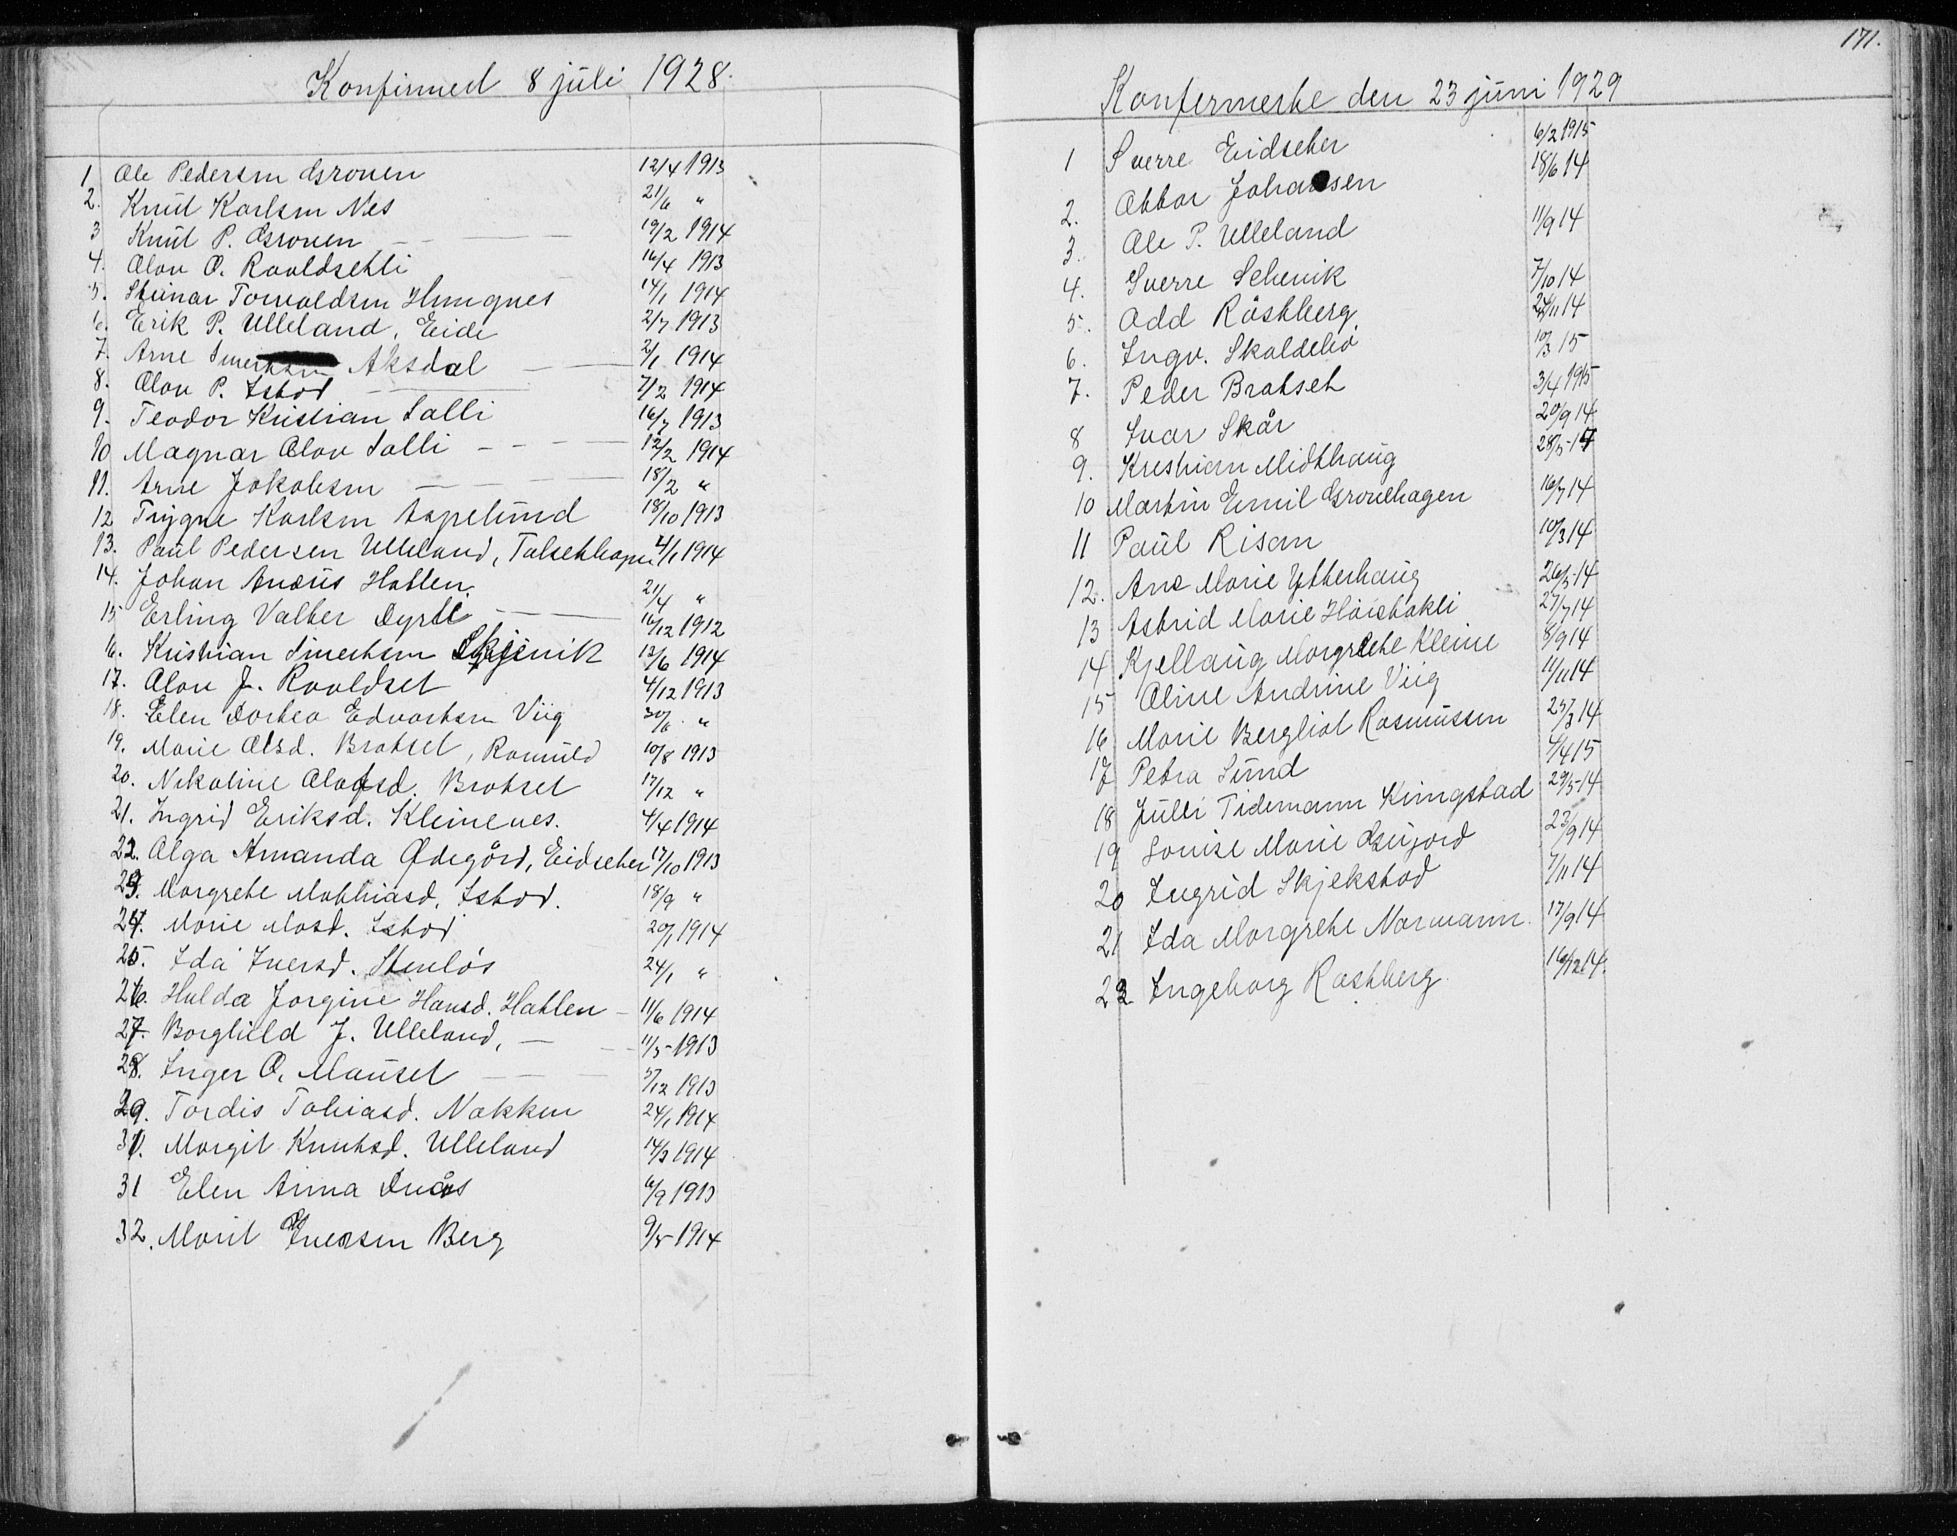 Konfirmert 8 juli 1928.
1. Ole Pedersen Gronen 12/4 1913
2. Knut Karlsen Nes 21/6 "
3 Knut P. Gronen 19/2 1914
4. Olav O. Roaldsetli 16/4 1913
5. Steinar Torvaldsen Hungnes 14/1 1914
6. Erik P. Ulleland, Eide 2/7 1913
7. Arne Aksdal 2/1 1914
8. Olav P. Istad 7/2 1914
9. Teodor Kristian Salli 16/7 1913
10 Magnar Olav Salli 12/2 1914
11. Arne Jakobsen 18/2 "
12 Trygve Karlsen Aspelund 18/10 1913
13. Paul Pedersen Ulleland, Talsethagen 2/1 1914
14. Johan Hatlen. 21/4 "
15 Erling Valter Dyrli 16/12 1912
16. Kristian Sivertsen Skjevik 13/6 1914
17. Olav J. Roaldset 4/12 1913
18. Elen Dortea Edvartsen Viig 30/6 "
19. Marie Olsd. Bratset, Romuld 10/8 1913
20. Nikoline Olafsd. Bratset 17/12 "
21. Ingrid Eriksd. Kleivenes. 4/4 1914
22. Olga Amanda Ødegård, Eidseter 17/10 1913
23. Margrete Mathiasd. Istad. 18/9 "
24. Marie Masd. Istad 20/1 1914
25. Ida Iversd. Stenløs 24/1 "
26. Hulda Jorgine Hansd. Hatlen 11/6 1914
27. Borghild J. Ulleland, 11/5 1913
28. Inger O. Mauset 5/12 1913
29. Tordis Tobiasd. Nakken 24/1 1914
30. Margit Knutsd. Ulleland 14/3 1914
31 Elen Anna Snås 6/9 1913
32. Marit Iversen Berg 9/5 1914
171.
Konfermerte den 23 juni 1929
1 Sverre Eidseter 6/2 1915
2. Abbor Johansen 18/6 14
3. Ole P. Ulleland 11/9 14
4. Sverre Schevik 7/10 14
5. Odd Råstberg 24/11 14
6. Ingv. Skaldebö 10/3 15
7. Peder Bratset 3/4 1915
8 Ivar Skår 20/9 14
9. Kristian Midthaug 28/5 14
10 Martin Emil Gronehagen 16/7 14
11 Paul Risan 10/3 14
12. Ane Marie Ytterhaug 26/5 14
13 Astrid Marie Høistakli 27/7 14
14 Kjellaug Margrethe Kleive 8/9 14
15 Oline Andrine Viig 11/11 14
16 Marie Bergliot Rasmussen 25/3 14
17 Petra Sund 4/4 15
18 Julli Tidemann Kringstad 29/5 14
19 Lovise Marie Gujord 23/9 14
20 Ingrid Skjekstad 7/11 14
21 Ida Margrete Normann. 17/9 14
22. Ingeborg Rastberg. 16/12 14.